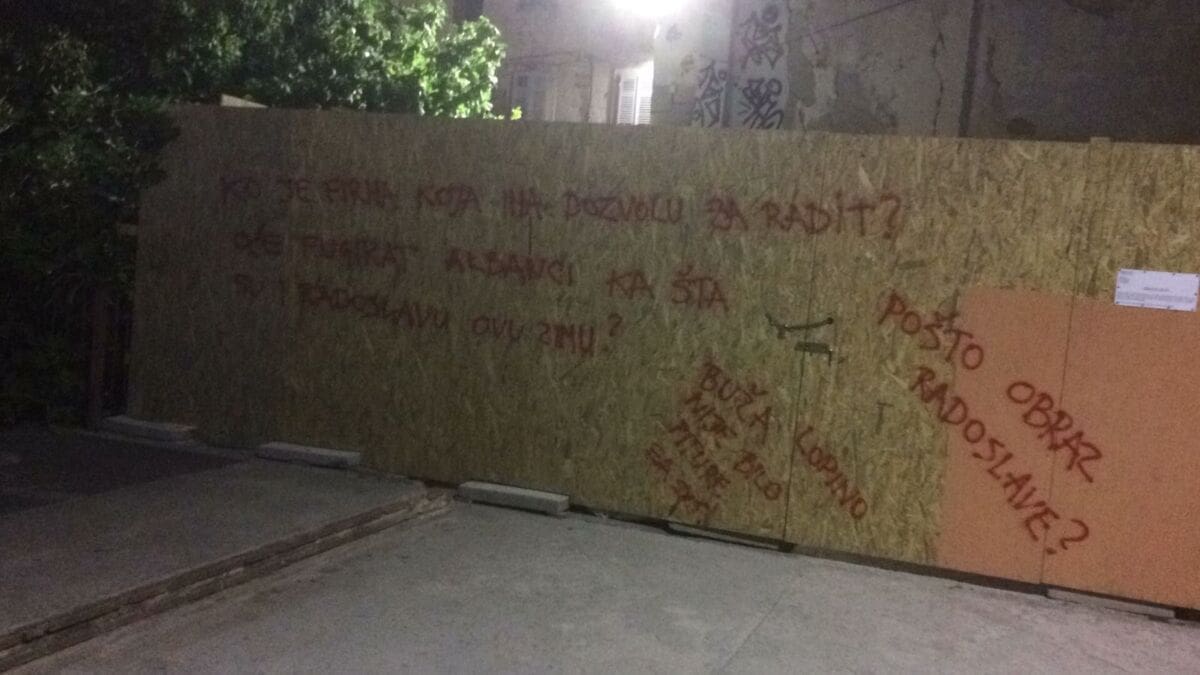 KO JE FIRMA KOJA IMA DOZVOLU ZA RADIT?
OĆE FUGIRAT ALBANCI KA ŠTA
SU I RADOSLAVU OVU ZIMU?
POŠTO OBRAZ
RADOSLAVE?
BUŽA LOPINO
NIJE BILO
PITURE
ZA